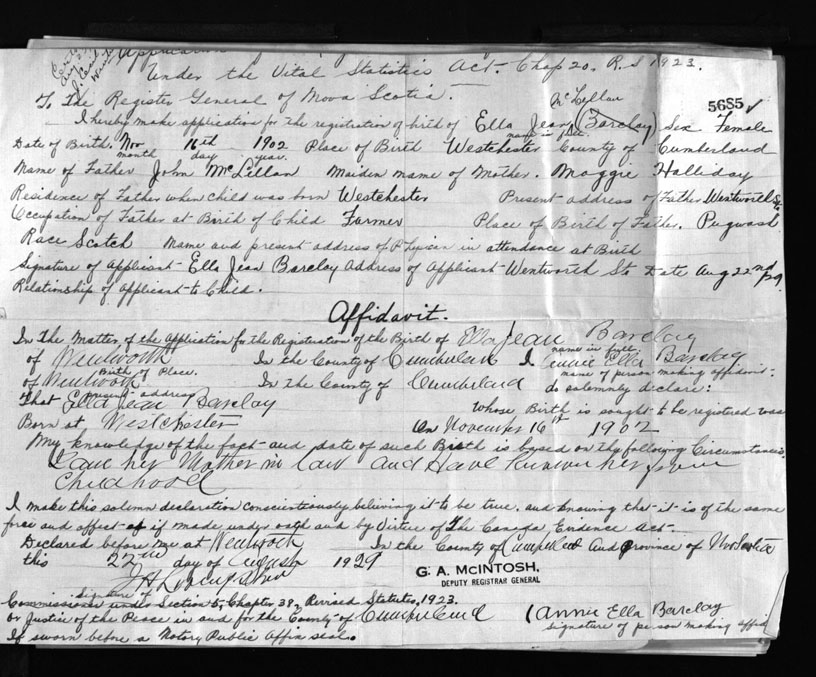 Application
Under the Vital Statistics Act. Chap 20. R.S 1923.
To The Register General of Nova Scotia.
5685
McLellan
I hereby make application for the registration of birth of Ella Jean (Barclay) Sex Female
name in full
Date of Birth. Nov 16th 1902 Place of Birth Westchester County of Cumberland
month day year.
Name of Father John McLellan Maiden name of Mother. Maggie Halliday
Residence of Father when child was born Westchester Present address of Father Wentworth Stn
Occupation of Father at Birth of Child Farmer Place of Birth of Father. Pugwash
Race Scotch Name and present address of Physican in attendance at Birth
Signature of Applicant Ella Jean Barclay Address of Applicant Wentworth St Date Aug 22nd /29
Relationship of applicant to Child.
Affidavit.
In The Matter of the Application for the Registration of the Birth of Ella Jean Barclay
name in full.
of Wentworth In the County of Cumberland I Annie Ella Barclay
Birth of Place. name of person making affidavit-
of Wentworth In the County of Cumberland do solemnly declare:
present address
That Ella Jean Barclay whose Birth is sought to be registered was
Born at Westchester On November 16th 1902
My knowledge of the fact and date of such Birth is based on thy following Circumstances,
I am her Mother in law and Have known her from
Childhood
I make this solemn declaration conscienteously beliving it to be true, and knowing that it is of the same
force and affect of if made under oath and by Virtue of The Canada Evidence Act-
Declared before me at Wentworth In the County of Cumberland And Province of Nova Scotia
this 22nd day of August 1929
G. A. McINTOSH,
DEPUTY REGISTRAR GENERAL
Signature of
Commissioner under Section 5, Chapter 38, Revised Statutes, 1923.
or Justice of the Peace in and for the County of Cumberland
(Annie Ella Barclay
signature of person making affid
If sworn before a Notary Public Affix seal.